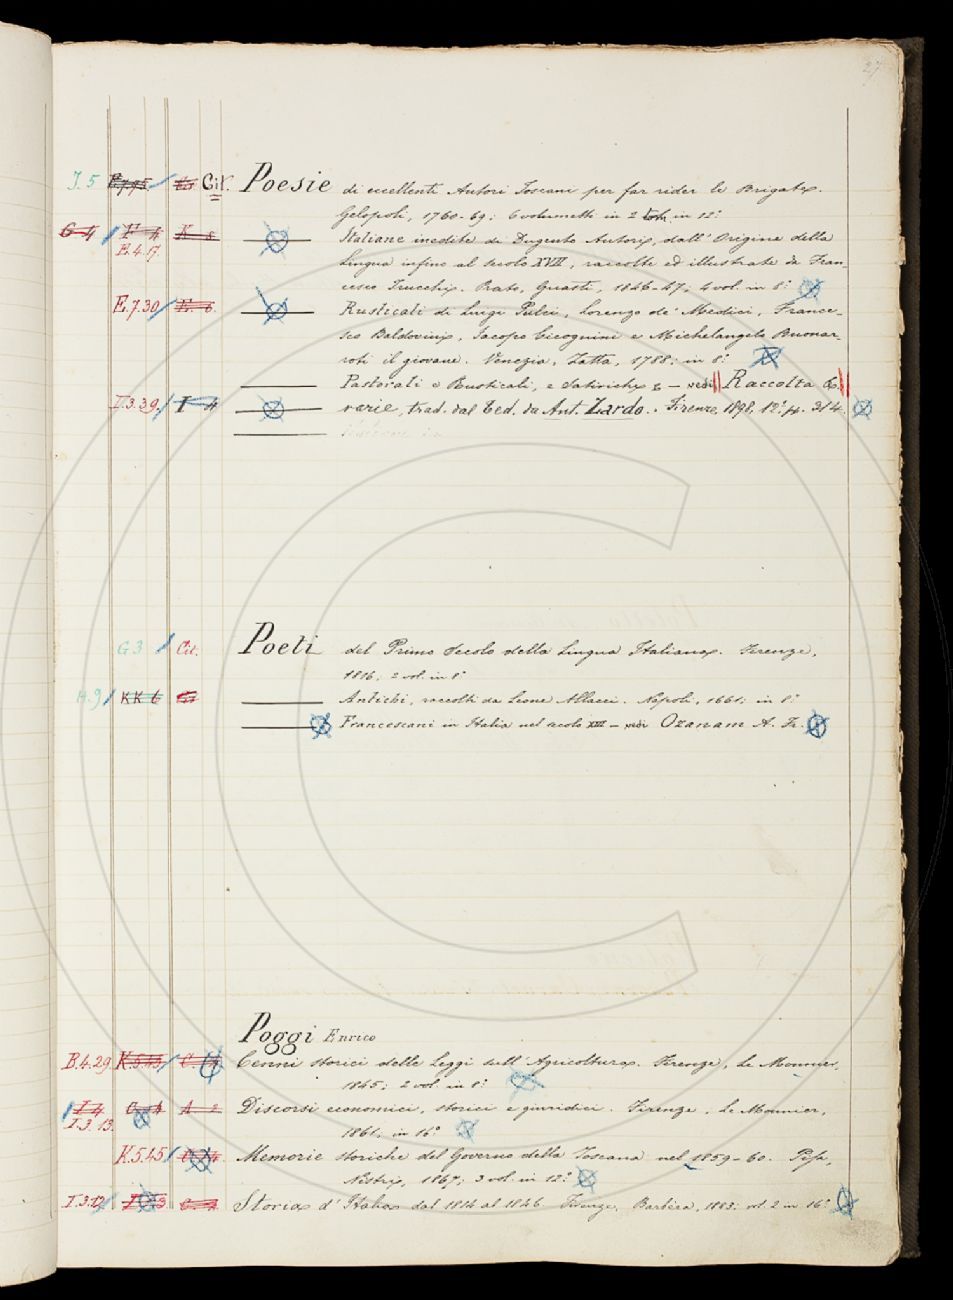 27
J. 5 Cit. Poesie di eccellenti Autori Toscani per far rider le Brigate.
Gelopoli, 1760-69; 6 volumetti in 2 in 12°
G 4 F 4 K 8 Italiane inedite di Dugento Autori, dall' Origine della
E.4.17. Lingua infino al secolo XVII, raccolte ed illustrate da Fran-
cesco Trucchi. Prato, Guasti, 1846-47; 4 vol. in 8°
E.7.30 Rusticali di Luigi Pulci, Lorenzo de' Medici, France-
sco Baldovini, Jacopo Cicognini e Michelangelo Buonar-
roti il giovane. Venezia, Zatta, 1788; in 8°
Pastorali e Rusticali, e Satiriche &. — vedi Raccolta &.
I.3.39. I 4 varie, trad. dal Ted. da Ant. Zardo. Firenze, 1898, 12° p. 314.
G 3 Cit. Poeti del Primo Secolo della Lingua Italiana. Firenze,
1816; 2 vol. in 8°
H.9 KK 6 Antichi, raccolti da Leone Allacci. Napoli, 1661; in 8°
Francescani in Italia nel secolo XIII — vedi Ozanam A. F.
Poggi Enrico
B.4.29 K.5.43 Cenni storici delle Leggi sull' Agricoltura. Firenze, Le Monnier,
1845; 2 vol. in 8°
I 4 A 2 Discorsi economici, storici e giuridici. Firenze, Le Monnier,
I.3.13. 1861; in 16°
K.5.45 Memorie storiche del Governo della Toscana nel 1859-60. Pisa,
Nistri, 1867; 3 vol. in 12°
I.3.12 Storia d'Italia dal 1814 al 1846 Firenze, Barbèra, 1883; vol. 2 in 16°